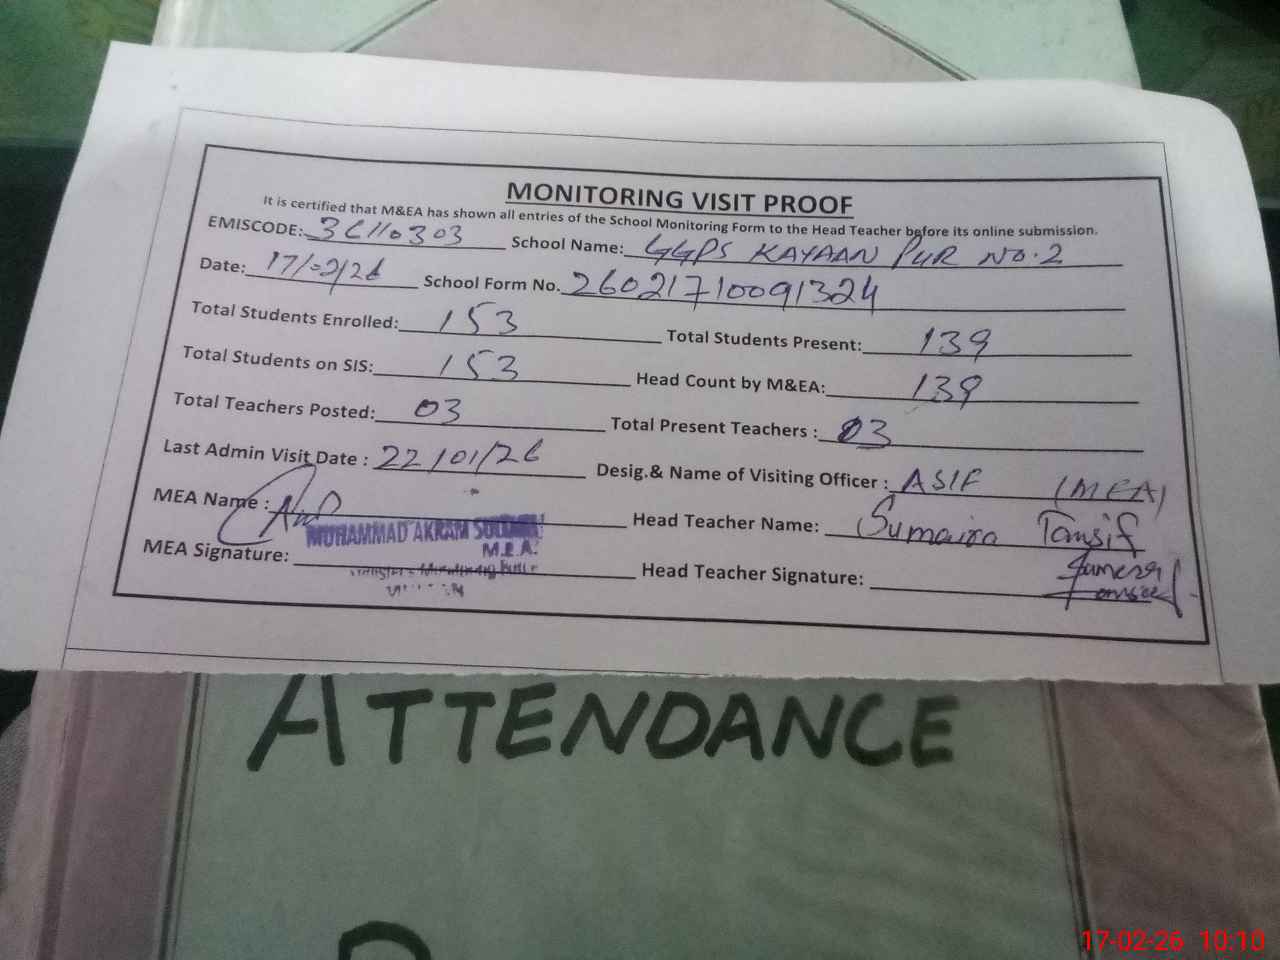 MONITORING VISIT PROOF
It is certified that M&EA has shown all entries of the School Monitoring Form to the Head Teacher before its online submission.
EMISCODE: 36110303 School Name: GGPS KAYAAN PUR NO.2
Date: 17/02/26 School Form No. 26021710091324
Total Students Enrolled: 153 Total Students Present: 139
Total Students on SIS: 153 Head Count by M&EA: 139
Total Teachers Posted: 03 Total Present Teachers : 03
Last Admin Visit Date : 22/01/26 Desig.& Name of Visiting Officer : ASIF (MEA)
MEA Name : Head Teacher Name: Sumaira Tansif
MUHAMMAD AKRAM
M.E.A.
MEA Signature: Head Teacher Signature:
ATTENDANCE
17-02-26 10:10